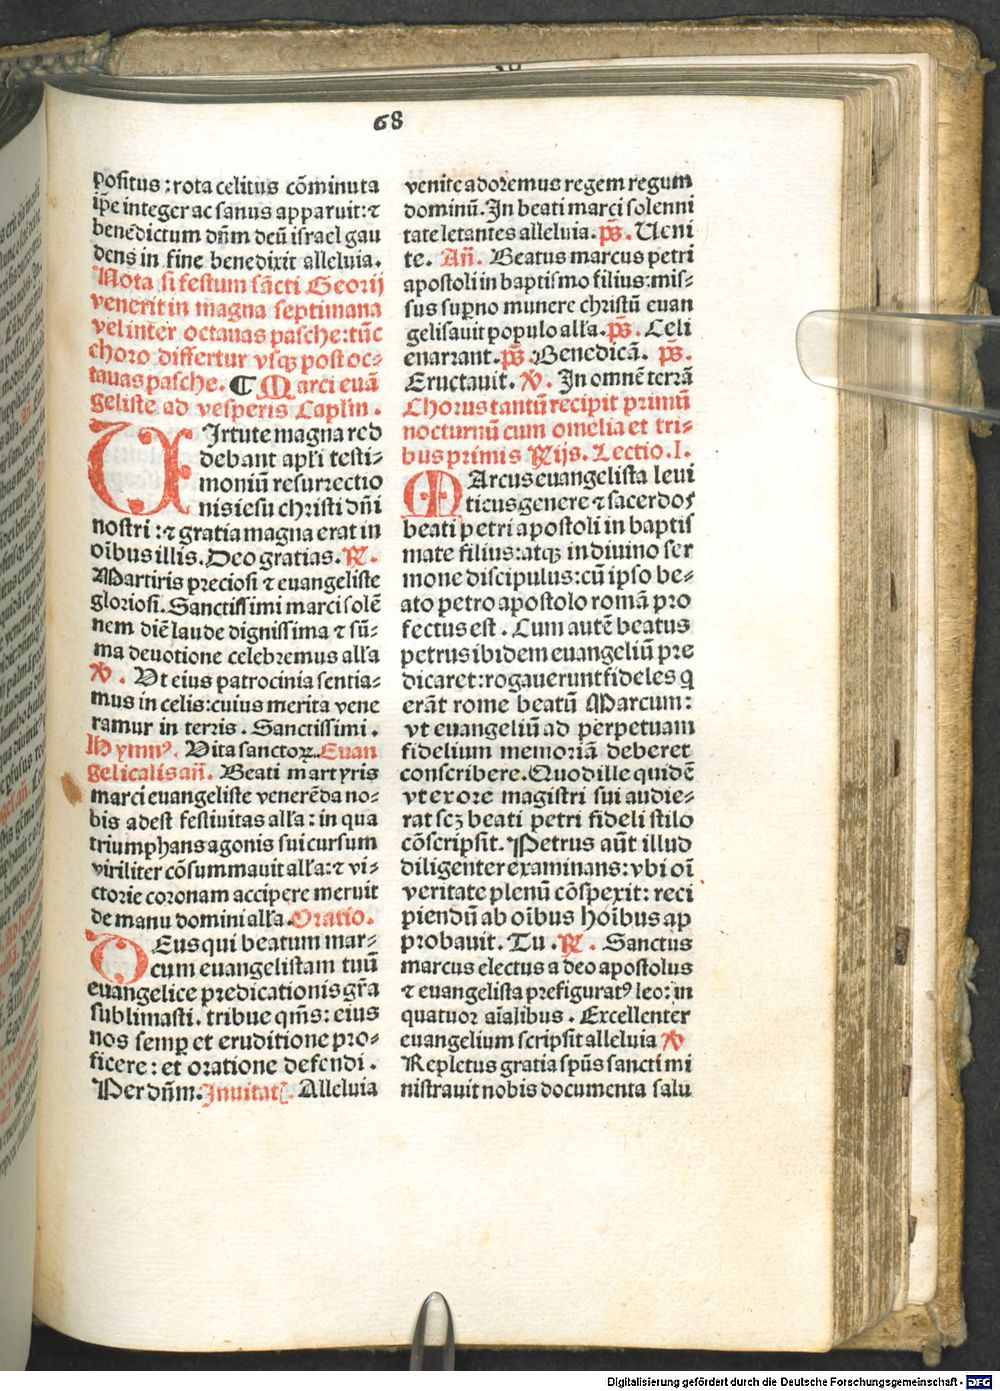 68
positus : rota celitus cõminuta
ip̃e integer ac sanus apparuit: ⁊
benedictum dñm deũ israel gau
dens in fine benedixit alleluia.
Nota si festum sãcti Georij
venerit in magna septimana
vel inter octauas pasche: tũc
choro differtur vsqꝫ post oc⸗
tauas pasche. ¶ Marci euã
geliste ad vesperis Caplm̃.
VIrtute magna red
debant apl̃i testi⸗
moniũ resurrectio
nis iesu christi dñi
nostri : ⁊ gratia magna erat in
oĩbus illis. Deo gratias. ℟.
Martiris preciosi ⁊ euangeliste
gloriosi. Sanctissimi marci solẽ
nem diẽ laude dignissima ⁊ sũ⸗
ma deuotione celebremus all'a
℣. Vt eius patrocinia sentia⸗
mus in celis: cuius merita vene
ramur in terris. Sanctissimi.
Hymnꝰ. Vita sanctoꝝ. Euan
gelicalis añ. Beati martyris
marci euangeliste venerẽda no⸗
bis adest festiuitas all'a: in qua
triumphans agonis sui cursum
viriliter cõsummauit all'a: ⁊ vi⸗
ctorie coronam accipere meruit
de manu domini all'a. Oratio.
DEus qui beatum mar⸗
cum euangelistam tuũ
euangelice predicationis gr̃a
sublimasti. tribue qm̃s: eius
nos semꝑ et eruditione pro⸗
ficere : et oratione defendi.
Per dñm. Inuitat. Alleluia
venite adoremus regem regum
dominũ. In beati marci solenni
tate letantes alleluia. p̃s. Ueni
te. Añ. Beatus marcus petri
apostoli in baptismo filius: mis⸗
sus suꝑno munere christũ euan
gelisauit populo all'a. p̃s. Celi
enarrant. p̃s. Benedicã. p̃s.
Eructauit. ℣. In omnẽ terrã
Chorus tantũ recipit primũ
nocturnũ cum omelia et tri⸗
bus primis Rĩjs. Lectio. I.
MArcus euangelista leui
ticus genere ⁊ sacerdos
beati petri apostoli in baptis
mate filius: atqꝫ in diuino ser
mone discipulus: cũ ipso be⸗
ato petro apostolo romã pro
fectus est. Cum autẽ beatus
petrus ibidem euangeliũ pre
dicaret: rogauerunt fideles q̃
erãt rome beatũ Marcum:
vt euangeliũ ad perpetuam
fidelium memoriã deberet
conscribere. Quod ille quidẽ
vt ex ore magistri sui audie⸗
rat scꝫ beati petri fideli stilo
cõscripsit. Petrus aũt illud
diligenter examinans: vbi oĩ
veritate plenũ cõspexit: reci
piendũ ab oĩbus hoĩbus ap
probauit. Tu. ℟. Sanctus
marcus electus a deo apostolus
⁊ euangelista prefiguratꝰ leo: in
quatuor aĩalibus. Excellenter
euangelium scripsit alleluia ℣
Repletus gratia spũs sancti mi
nistrauit nobis documenta salu
Digitalisierung gefördert durch die Deutsche Forschungsgemeinschaft - DFG